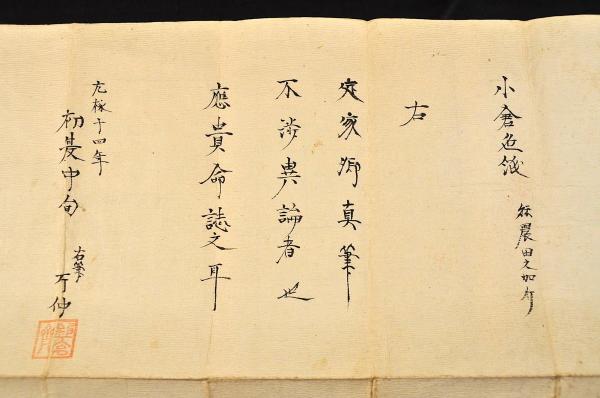 小倉色紙
農田之加
右
定家卿真筆
不渉異論者也
應貴命誌之耳
元禄十四年
初夏中旬
古筆
了仲